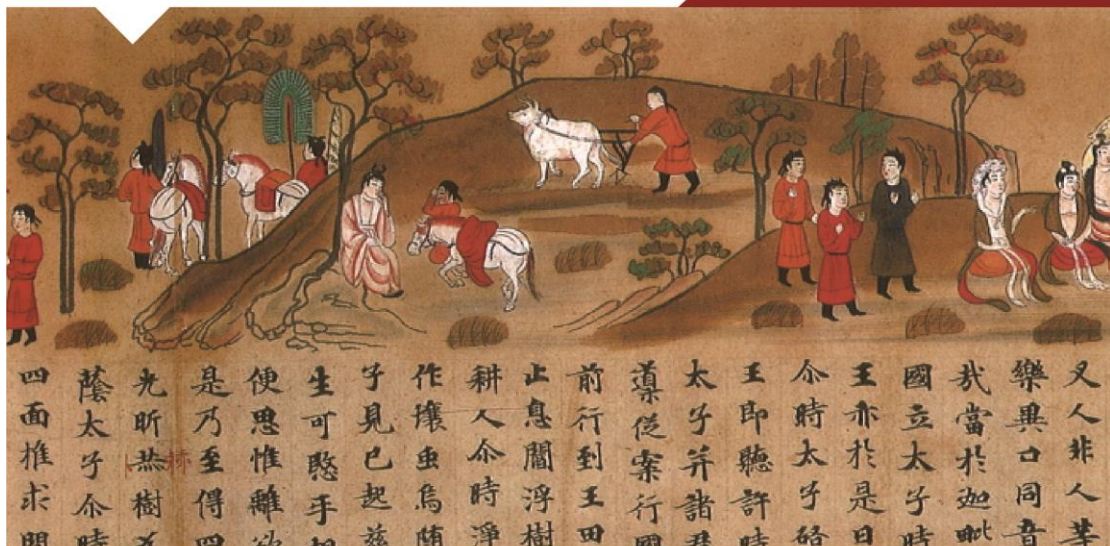 叉人非人等
樂異口同音
我當於迦毗
國立太子時
王亦於是日
尒時太子啓
王即聽許時
太子并諸君
導従案行國
前行到王田
止息閻浮樹
耕人尒時淨
作壤虫烏随
子見已起慈
生可愍手
便思惟離欲
是乃至得四
光昕樹
蔭太子尒時
四面推求問